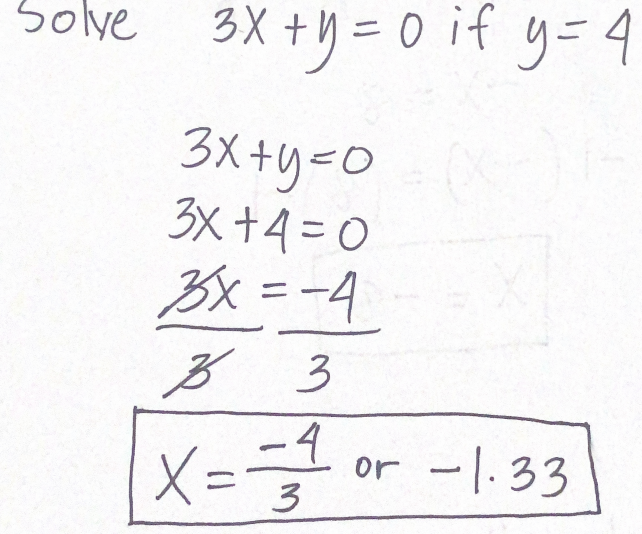 Solve 3x + y = 0 if y = 4
3x + y = 0
3x + 4 = 0
3x = -4
3 3
x = -4/3 or -1.33